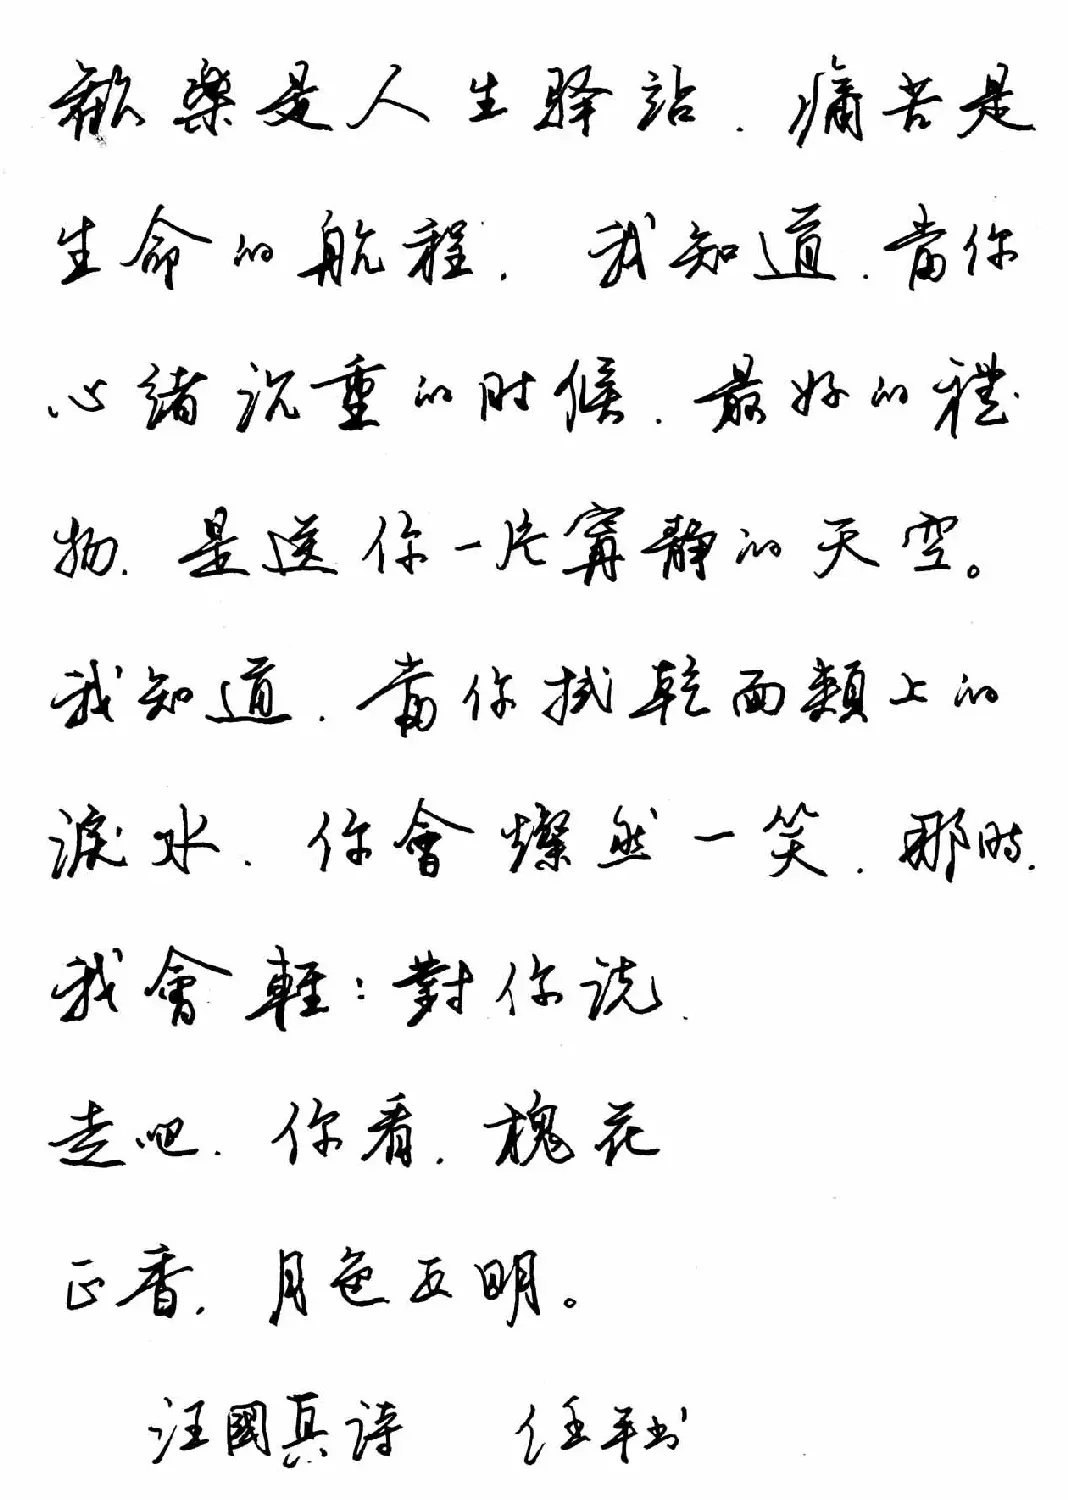 歡樂是人生驿站.痛苦是
生命的航程.我知道.當你
心緒沉重的时候.最好的禮
物.是送你一片寧静的天空。
我知道.當你拭乾面類上的
淚水.你會燦然一笑.那時.
我會輕:對你说.
走吧.你看.槐花
正香.月色正明。
汪國真诗 任平书